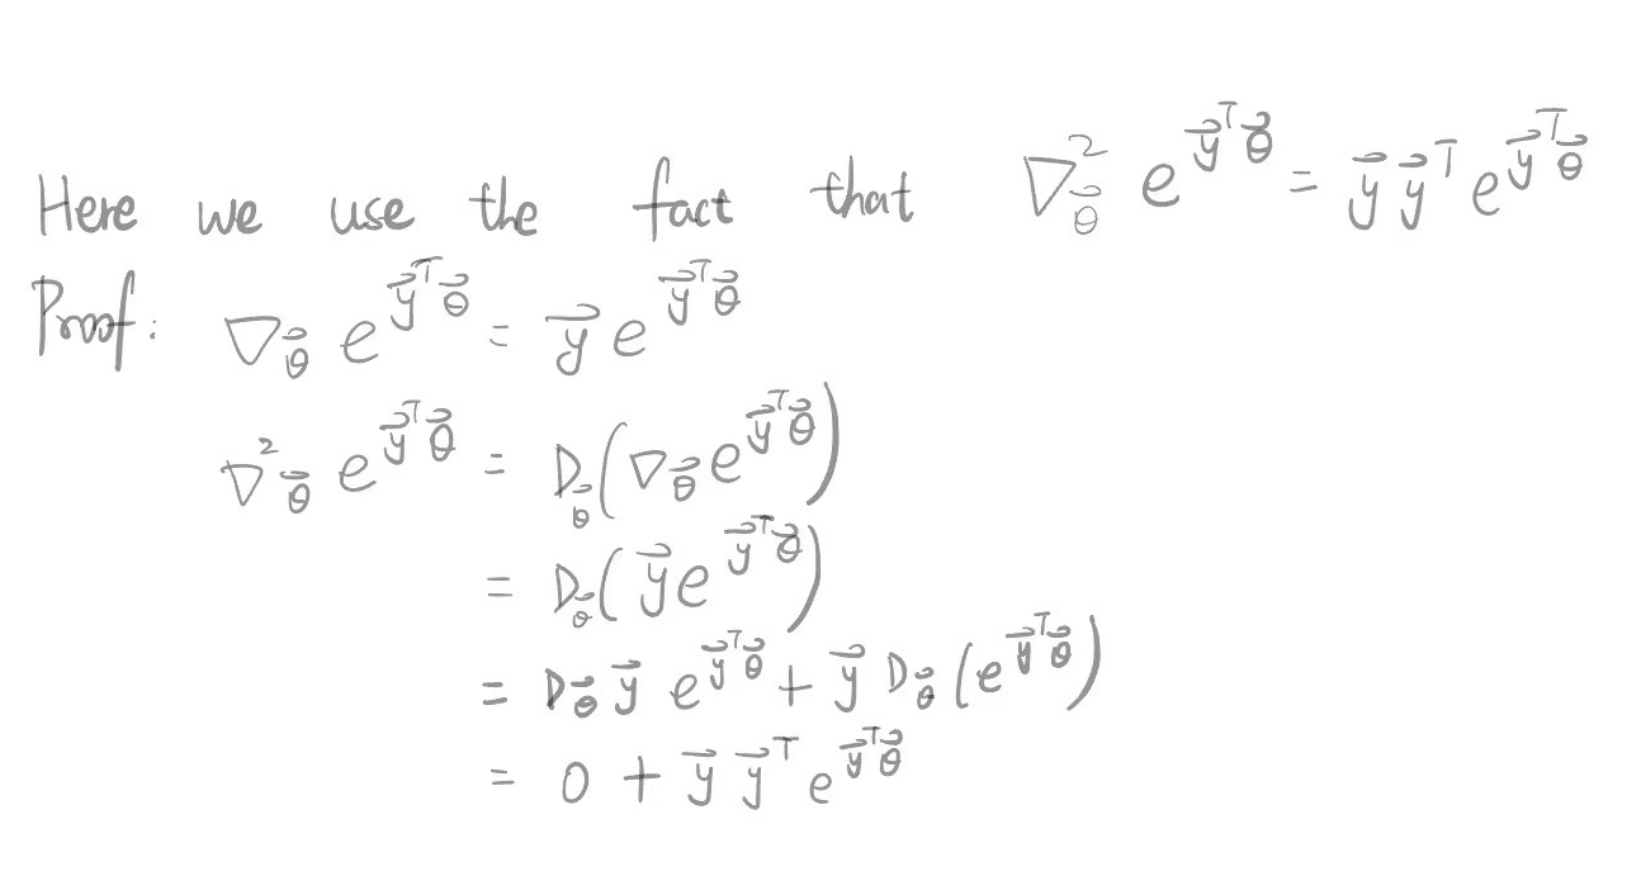 Here we use the fact that $\nabla^2_{\vec{\theta}} e^{\vec{y}^T\vec{\theta}} = \vec{y}\vec{y}^T e^{\vec{y}^T\vec{\theta}}$
Proof: $\nabla_{\vec{\theta}} e^{\vec{y}^T\vec{\theta}} = \vec{y} e^{\vec{y}^T\vec{\theta}}$
$\nabla^2_{\vec{\theta}} e^{\vec{y}^T\vec{\theta}} = D_{\vec{\theta}}(\nabla_{\vec{\theta}} e^{\vec{y}^T\vec{\theta}})$
$= D_{\vec{\theta}}(\vec{y} e^{\vec{y}^T\vec{\theta}})$
$= D_{\vec{\theta}}\vec{y} \, e^{\vec{y}^T\vec{\theta}} + \vec{y} D_{\vec{\theta}}(e^{\vec{y}^T\vec{\theta}})$
$= 0 + \vec{y}\vec{y}^T e^{\vec{y}^T\vec{\theta}}$